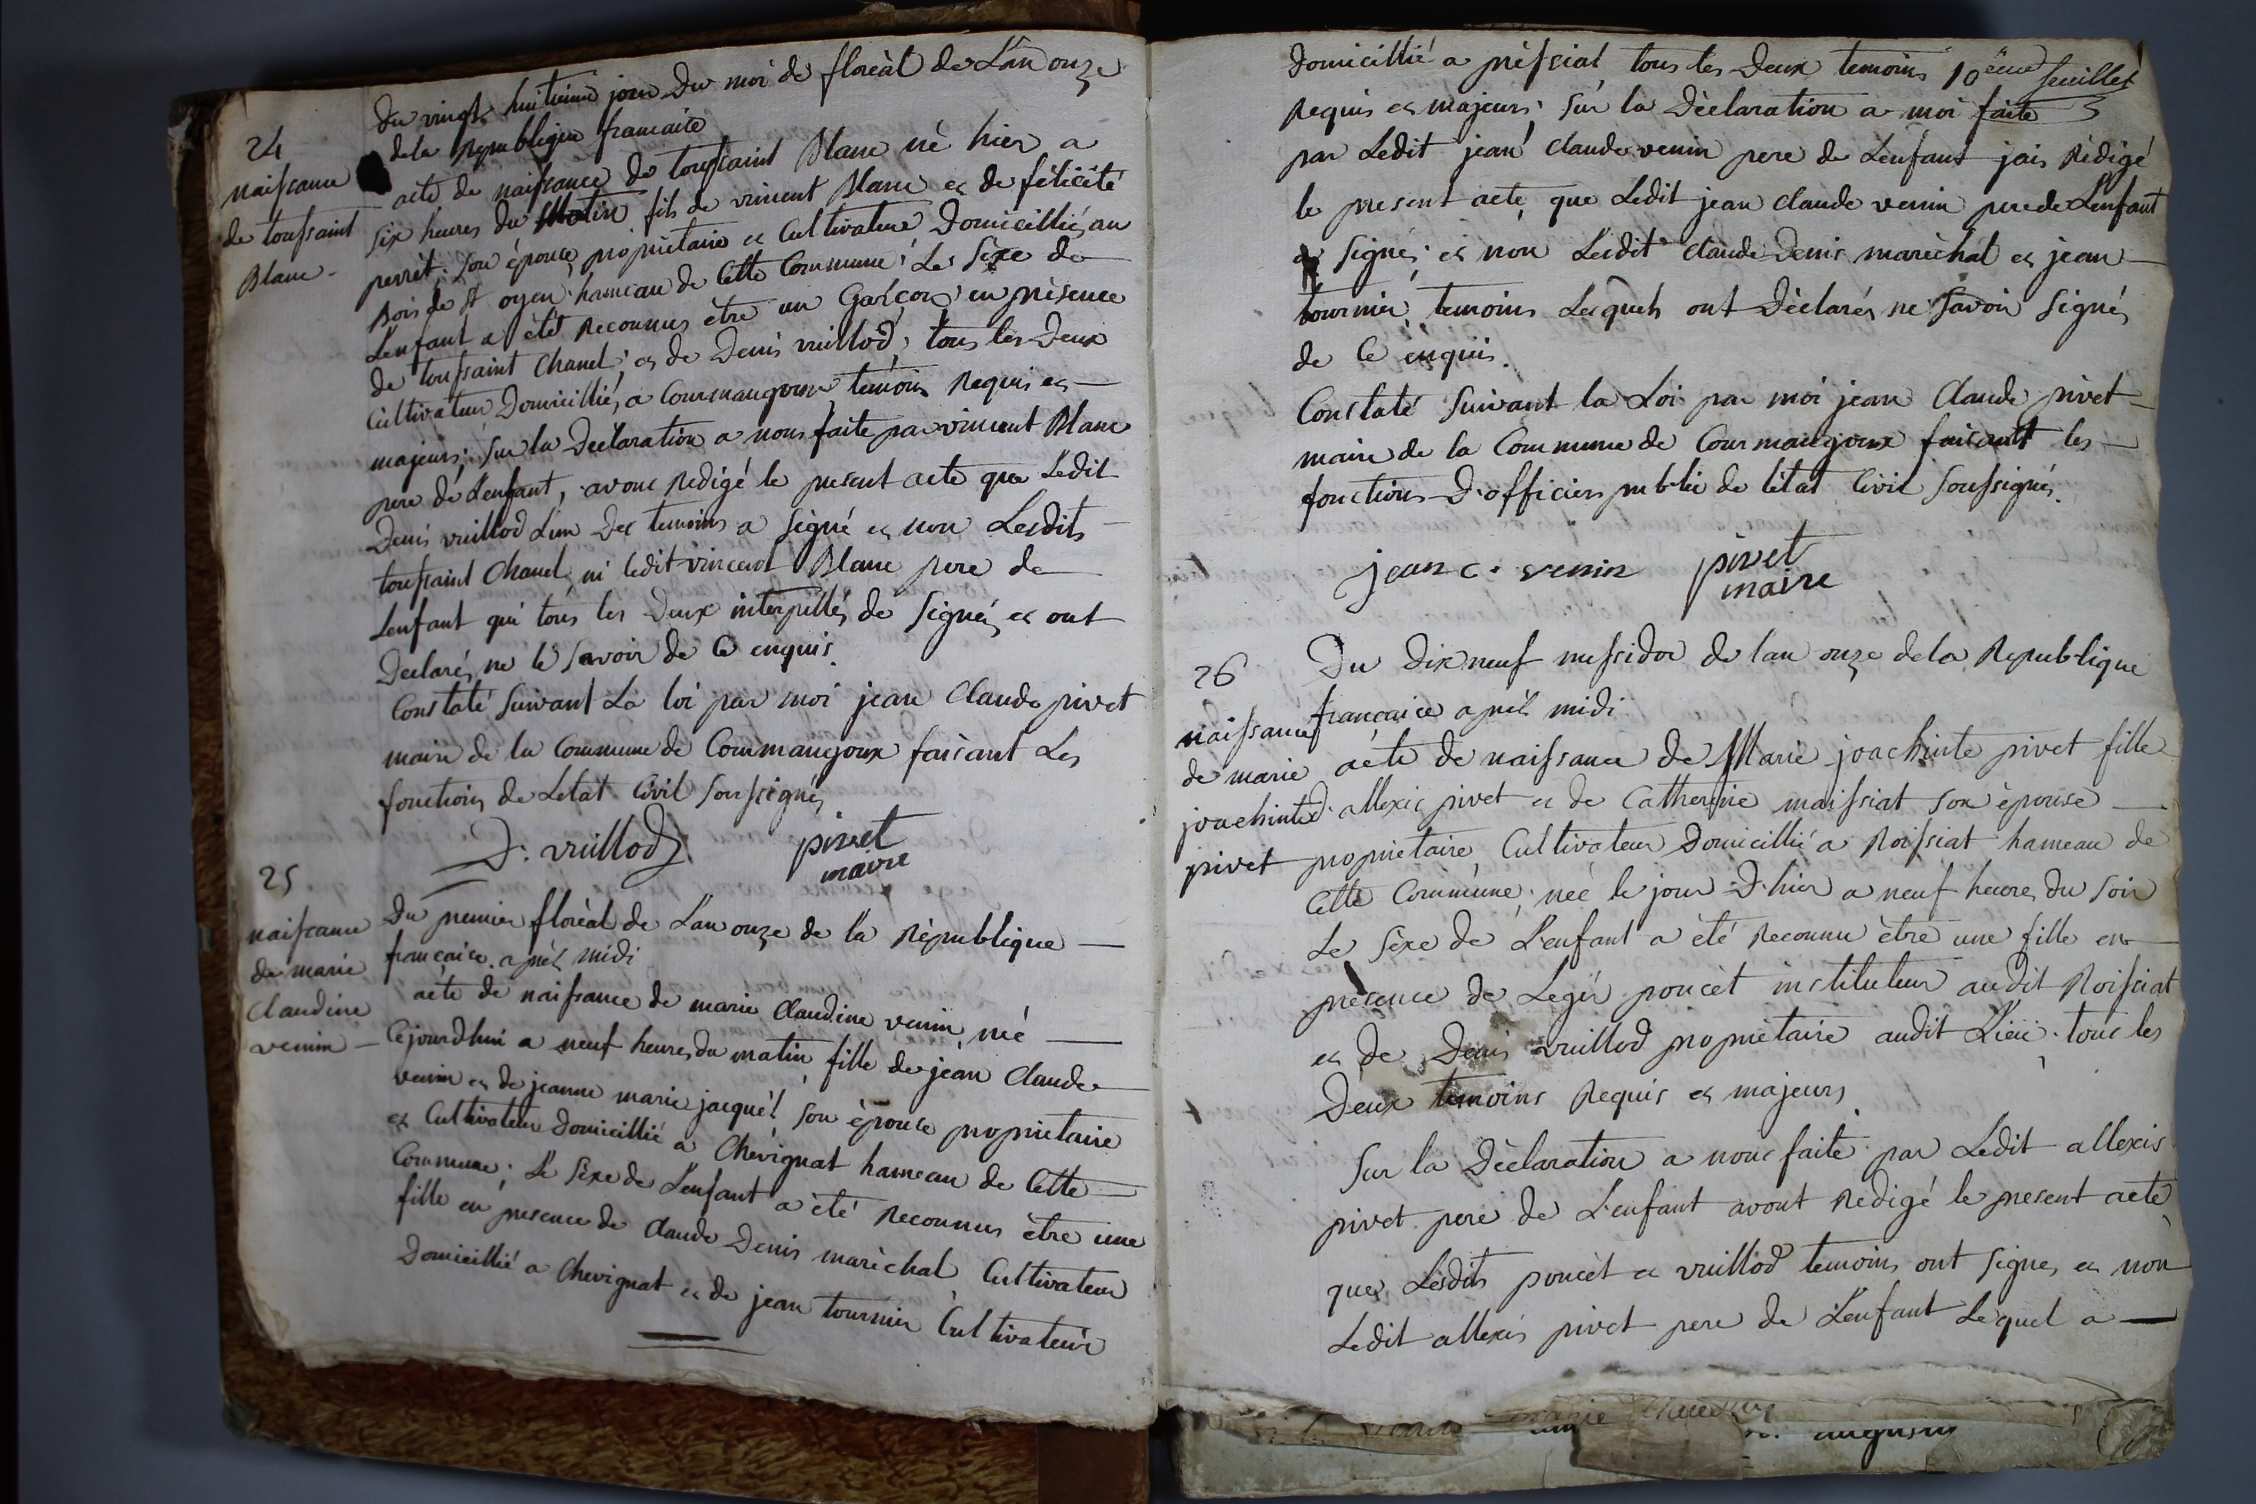 24
naissance
de toussaint
Blanc
Du vingt huitieme jour Du moi de florèal de L'an onze
dela Republique francaise
acte de naissance de toussaint Blanc né hier a
six heures du Matin fils de vincent Blanc et de félicité
perrèt; son épouce, propriètaire et Cultivateur Domicillié, au
Bois de St oyen hameau de Cette Commune; Le Sèxe de
L'enfant a étét Reconnus être un Garçon; en prèsence
de toussaint Chanel; et de Denis vuillod; tous les Deux
Cultivateur Domicillié, a Courmangoux temoins Requis et
majeurs; Sur la Declaration a nous faite par vincent Blanc
pere de L'enfant, avons Redigé le present acte que Ledit
Denis vuillod L'un Des temoins a signé et non Lesdits
toussaint Chanel ni ledit vincent Blanc pere de
Lenfant qui tous les Deux interpellés de Signés, et ont
Declarés ne le Savoir de Ce enquis.
Constaté Suivant La loi par moi jean Claude pivet
maire de la Commune de Courmangoux faisant Les
fonctions de Létat Civil Soussignés
D. vuillod pivet
maire
25
naissance
de marie
Claudine
venin
Du premier florèal de L'an onze de la Rèpublique
francaice. aprèt midi
acte de naissance de marie Claudine venin, né
Cejourdhui a neuf heures du matin fille de jean Claude
venin et de jeanne marie jacquèt son èpouse propriètaire
et Cultivateur Domicillié a Chevignat hameau de Cette
Commune; Le Sèxe de L'enfant a èté Reconnus être une
fille en presence de Claude Denis marèchal Cultivateur
Domicillié a Chevignat et de jean tournier Cultivateur
10ème feuillet
Domicillié a prèssiat tous les Deux temoins
Requis et majeurs; Sur la Dèclaration a moi faite
par Ledit jean Claude venin pere de Lenfant jais Rédigé
le present acte, que Ledit jean Claude venin pere de L'enfant
a Signés; et non Lesdit Claude Denis marèchal et jean
tournier, temoins Lesquels ont Dèclarés ne Savoir Signés
de Ce enquis.
Constaté Suivant la Loi par moi jean Claude pivet
maire de la Commune de Courmangoux faisant les
fonctions D'officiers public de létat Civil Soussignés.
jean c. venin pivet
maire
26
naissance
de marie
joachinte
pivet
Du Dix neuf messidor de lan onze dela Republique
francaice aprèt midi
acte de naissance de Marie joachinte pivet fille
d'allexis pivet et de Catherine maissiat son èpouse
propriètaire Cultivateur Domicillié a Roissiat hameau de
Cette Commune; neé le jour D'hier a neuf heures du Soir
Le Sèxe de L'enfant a été Reconnu être une fille en
presence de Legèr poncèt instituteur audit Roissiat
et de Denis vuillod propriètaire audit Lieu; tous les
Deux temoins Requis et majeurs.
Sur la Dèclaration a nous faite par Ledit allexis
pivet pere de L'enfant avont Redigé le present acte
que Lesdits poncèt et vuillod temoins ont Signes et non
Ledit allexis pivet pere de L'enfant Lequel a